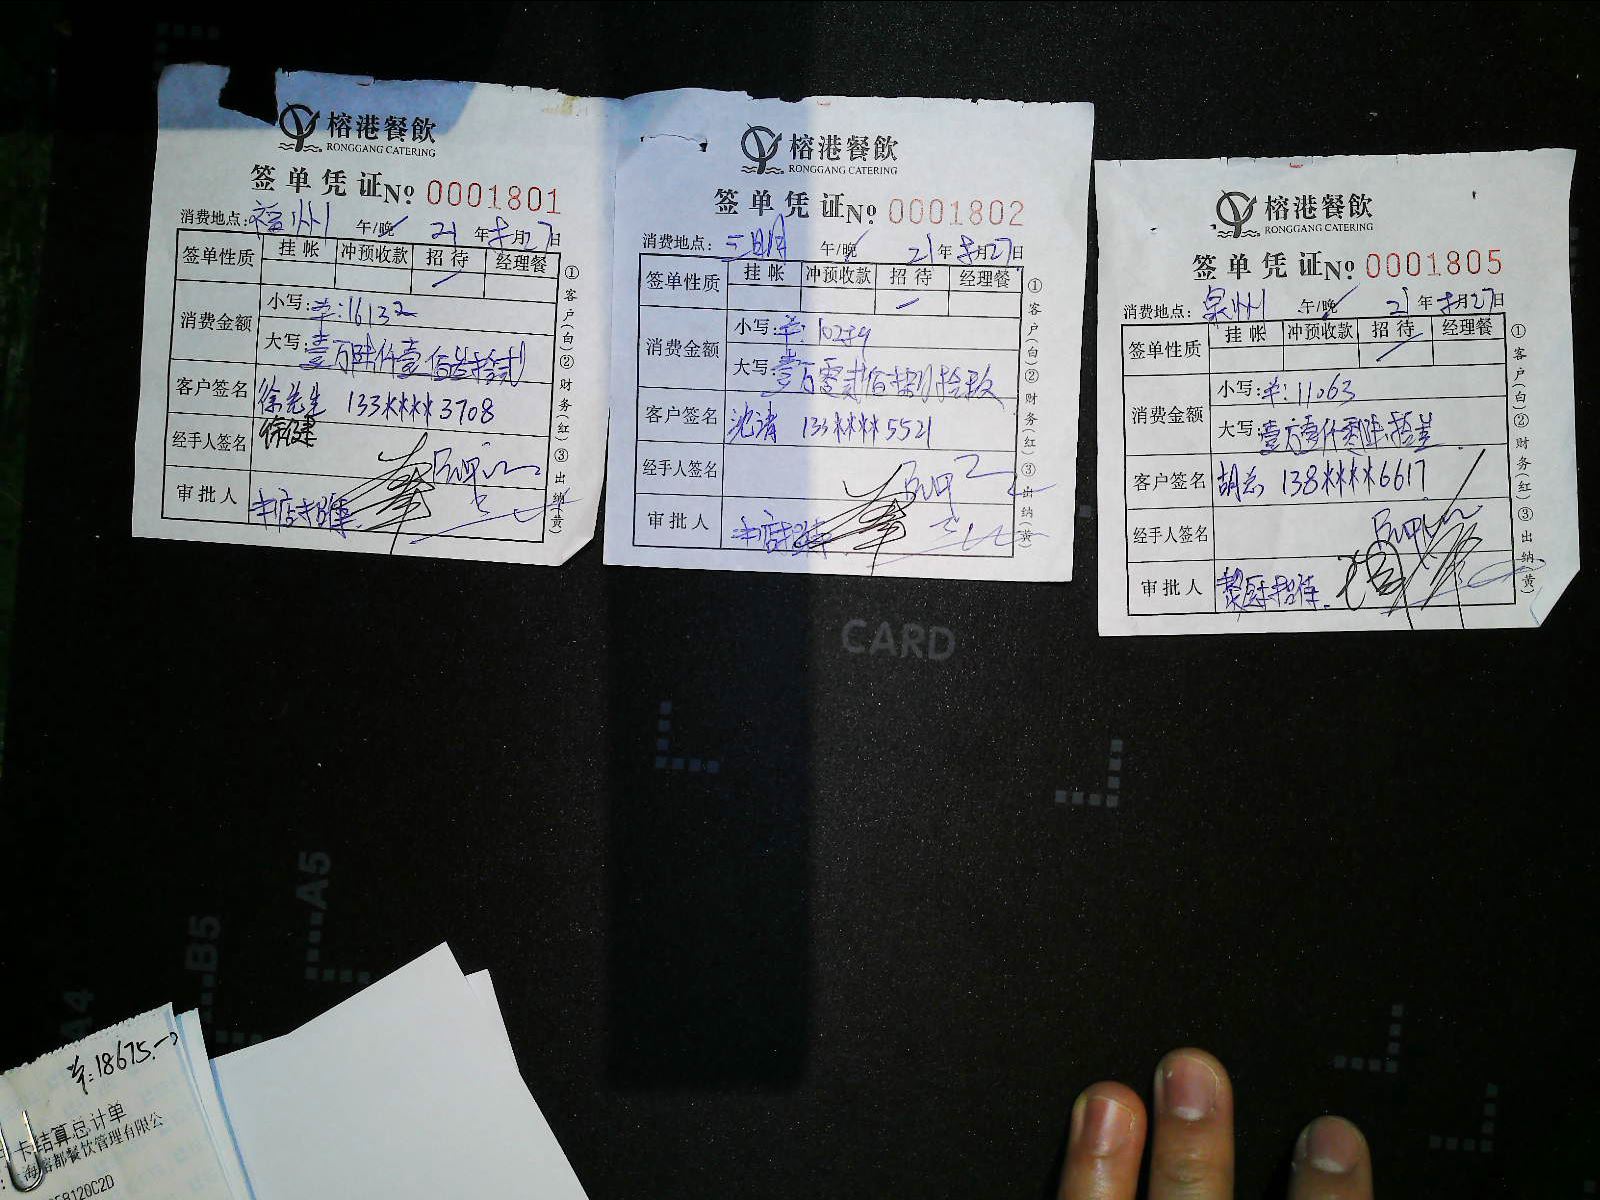 榕港餐飲
RONGGANG CATERING
签单凭证 № 0001801
消费地点: 福州 午/晚 21年8月27日
签单性质 挂帐 冲预收款 招待 经理餐
消费金额 小写: 16132
大写: 壹万陆仟壹佰叁拾贰
客户签名 徐先生 133****3708
经手人签名 徐健
审批人
①客户(白)②财务(红)③出纳(黄)
榕港餐飲
RONGGANG CATERING
签单凭证 № 0001802
消费地点: 三明 午/晚 21年8月27日
签单性质 挂帐 冲预收款 招待 经理餐
消费金额 小写:
大写: 壹万零贰佰
客户签名 沈清 133****5521
经手人签名
审批人
①客户(白)②财务(红)③出纳(黄)
榕港餐飲
RONGGANG CATERING
签单凭证 № 0001805
消费地点: 泉州 午/晚 21年8月27日
签单性质 挂帐 冲预收款 招待 经理餐
消费金额 小写: 11063
大写: 壹万壹仟零陆拾叁
客户签名 胡总 138****6617
经手人签名
审批人 招待
①客户(白)②财务(红)③出纳(黄)
CARD
A5
B5
A4
18675.-
卡结算总计单
海榕都餐饮管理有限公
B120C2D